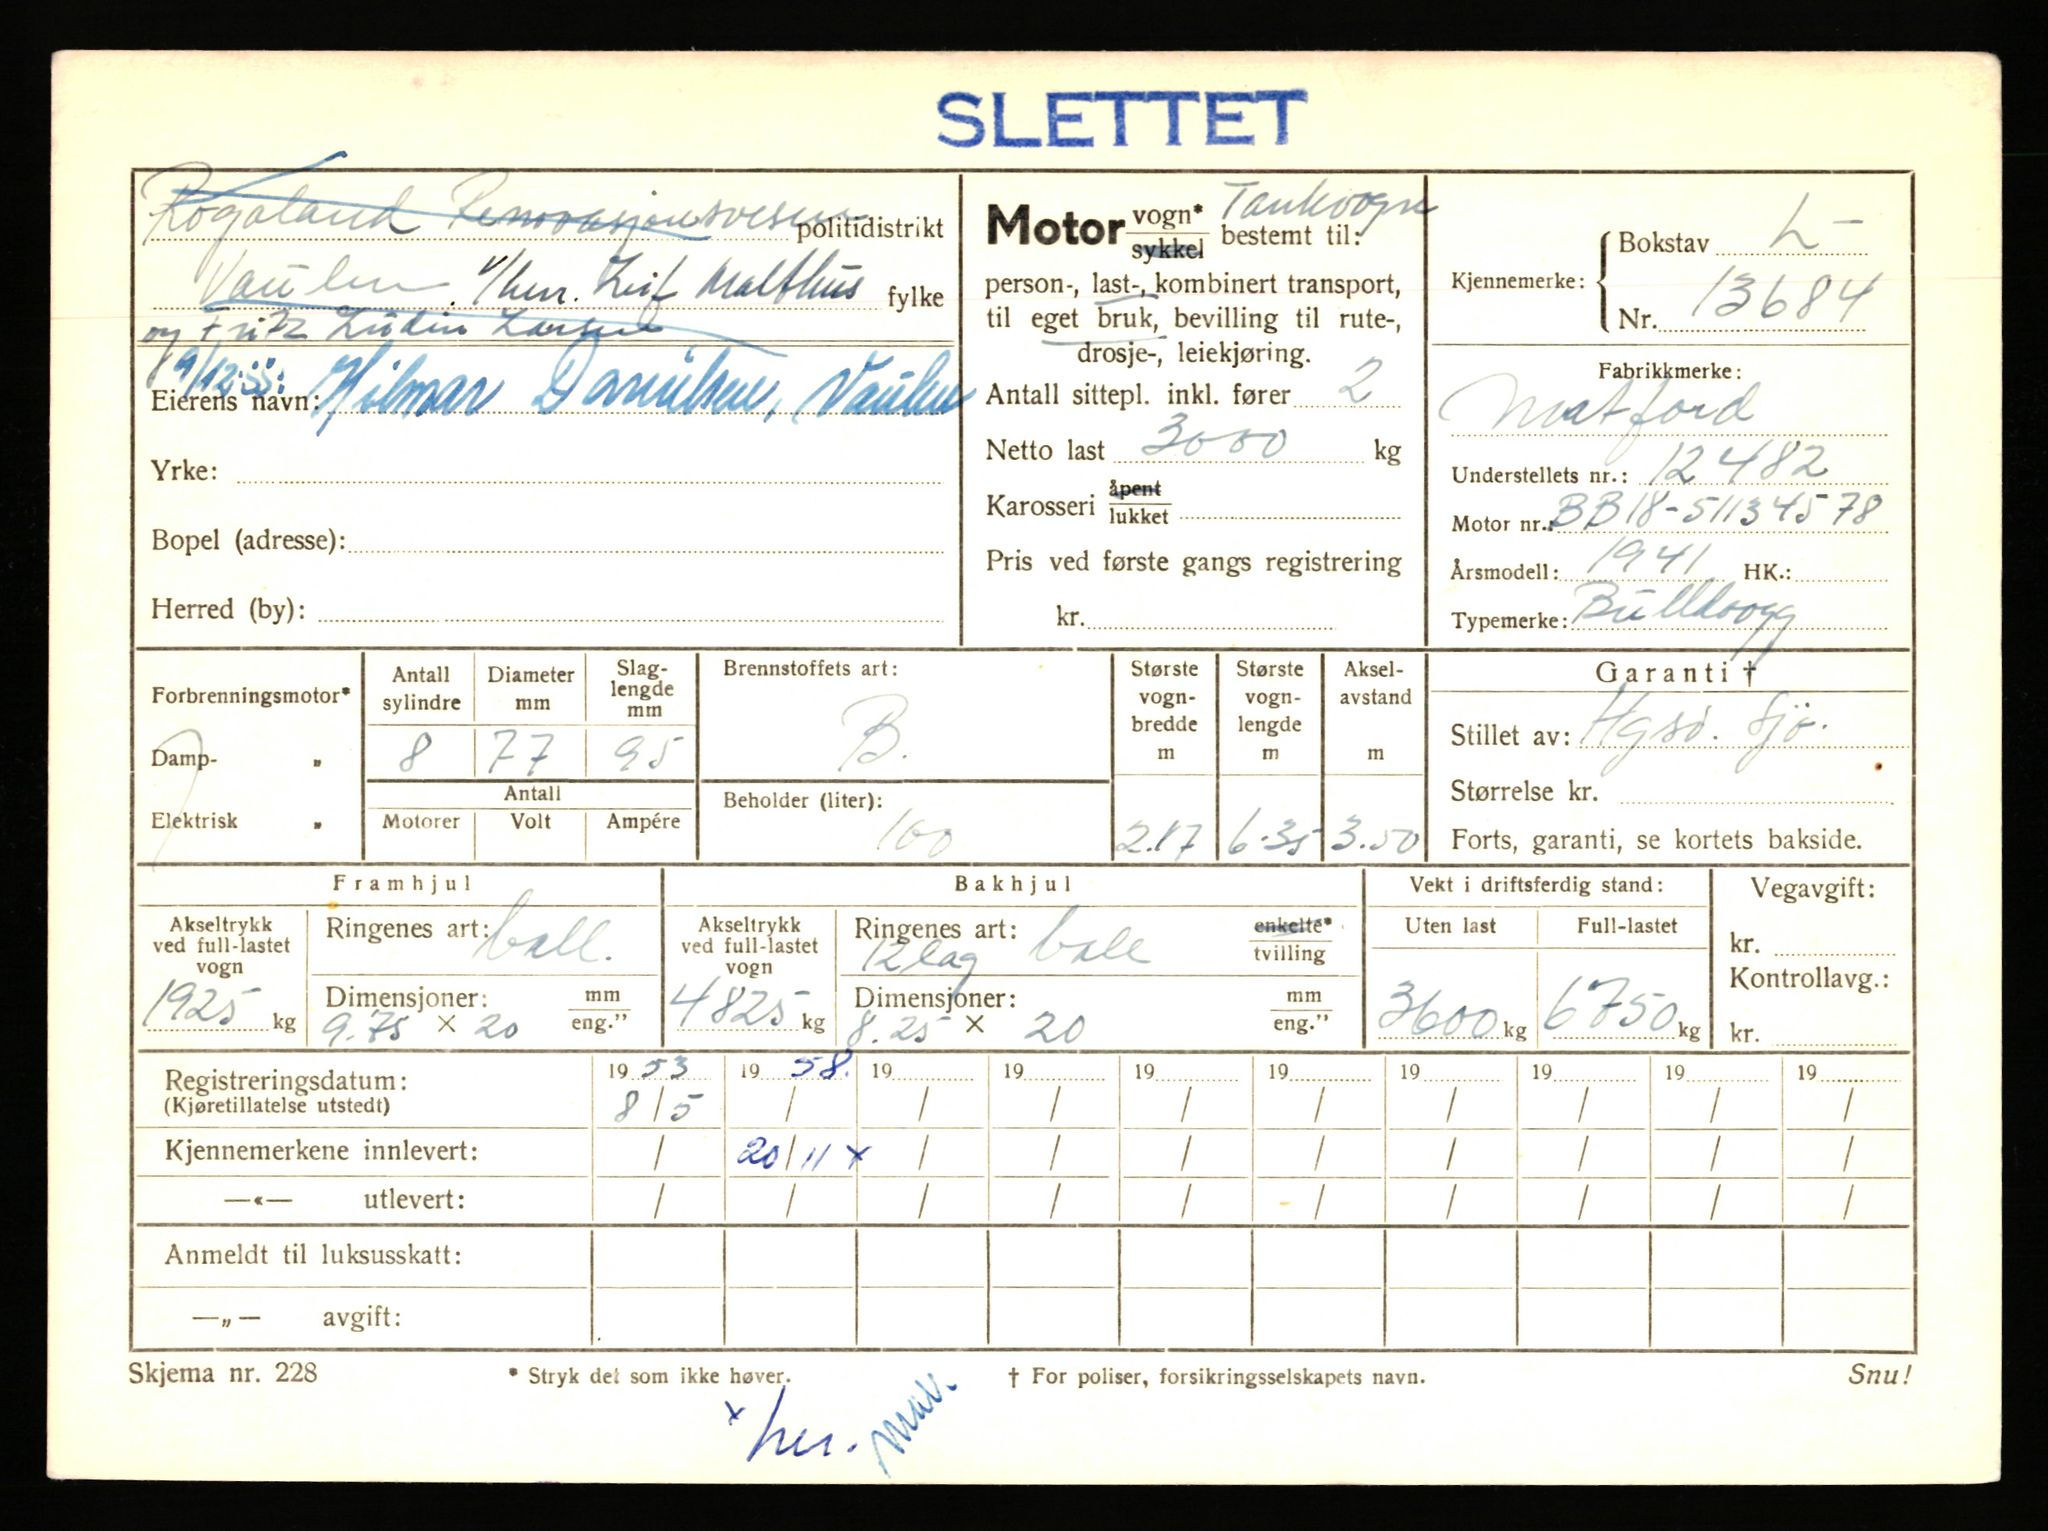 SLETTET
Rogaland Renovasjonsvesen politidistrikt
Vaulen. v/herr. Leif Malthus fylke
og Fritz Ludin Larsen
9/12-55:
Eierens navn: Hilmar Danielsen, Vaulen
Yrke:
Bopel (adresse):
Herred (by):
Motor vogn* Tankvogn
sykkel bestemt til:
person-, last-, kombinert transport,
til eget bruk, bevilling til rute-,
drosje-, leiekjøring.
Antall sittepl. inkl. fører 2
Netto last 3000 kg
Karosseri åpent
lukket
Pris ved første gangs registrering
kr.
Kjennemerke: Bokstav L-
Nr. 13684
Fabrikkmerke:
Matford
Understellets nr.: 12482
Motor nr.: BB18-51134578
Årsmodell: 1941 HK.:
Typemerke: Bulldogg
Forbrenningsmotor*
Damp- „
Elektrisk „
Antall sylindre
Diameter mm
Slag-
lengde
mm
8 77 95
Antall
Motorer Volt Ampére
Brennstoffets art:
B.
Beholder (liter):
100
Største
vogn-
bredde
m
2.17
Største
vogn-
lengde
m
6.35
Aksel-
avstand
m
3.50
Garanti †
Stillet av: Hgsd. Sjø.
Størrelse kr.
Forts, garanti, se kortets bakside.
Framhjul
Akseltrykk
ved full-lastet
vogn
1925 kg
Ringenes art: ball.
Dimensjoner: mm
9.75 × 20 eng."
Bakhjul
Akseltrykk
ved full-lastet
vogn
4825 kg
Ringenes art: ball enkelte*
12 lag tvilling
Dimensjoner: mm
8.25 × 20 eng."
Vekt i driftsferdig stand:
Uten last Full-lastet
3600 kg 6750 kg
Vegavgift:
kr.
Kontrollavg.:
kr.
Registreringsdatum: 1953 1958. 19 19 19 19 19 19 19 19
(Kjøretillatelse utstedt) 8/5 / / / / / / / / /
Kjennemerkene innlevert: / 20/11 x / / / / / / / /
—«— utlevert: / / / / / / / / / /
Anmeldt til luksusskatt:
—„— avgift:
Skjema nr. 228 * Stryk det som ikke høver. † For poliser, forsikringsselskapets navn. Snu!
x her.